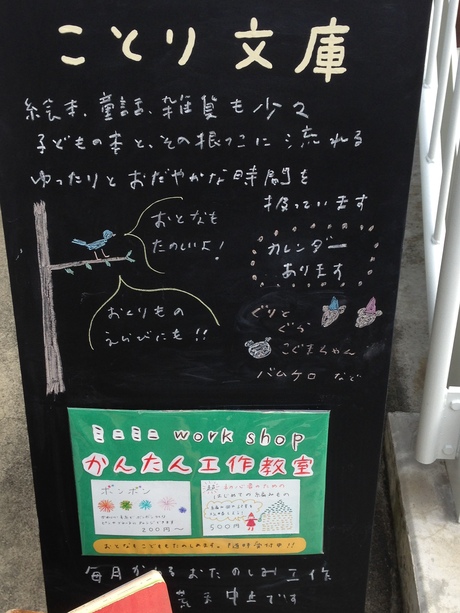 ことり文庫
絵本、童話、雑貨も少々
子どもの本と、その根っこに流れる
ゆったりとおだやかな時間を
扱っています
おとなも
たのしいよ!
カレンダー
あります
おくりもの
えらびにも!!
ぐりと
ぐら
こぐまちゃん
バムケロ など
ミニミニ work shop
かんたん工作教室
ポンポン
200円〜
はじめての
500円
おとなもこどももたのしめます。
毎月かわるおたのしみ工作
中止です